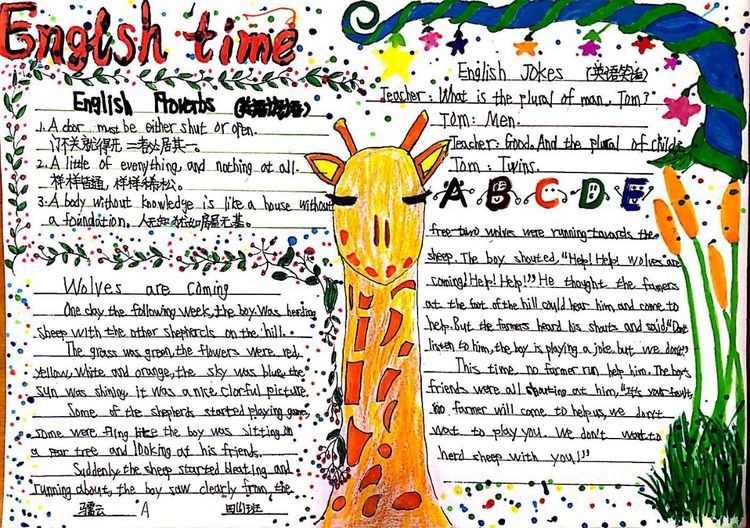 English time
English Proverbs (英语谚语)
1. A door must be either shut or open.
门不关就得开，二者必居其一。
2. A little of everything, and nothing at all.
样样皆通，样样稀松。
3. A body without knowledge is like a house without
a foundation. 人无知识如房屋无基。
Wolves are coming
One day the following week, the boy was herding
sheep with the other shepherds on the hill.
The grass was green, the flowers were red,
yellow, white and orange, the sky was blue, the
sun was shining, it was a nice clorful picture.
Some of the shepherds started playing games
some were the boy was sitting in
a pear tree and looking at his friends.
Suddenly the sheep started bleating and
running about, the boy saw clearly from the
云 A 四 班
English Jokes (英语笑话)
Teacher: What is the plural of man, Tom?
Tom: Men.
Teacher: Good. And the plural of child?
Tom: Twins.
A B C D E
wolves were running towards the
sheep. The boy shouted, "Help! Help wolves are
coming! Help! Help!" He thought the famers
at the foot of the hill could hear him and come to
help. But the farmers heard his shuts and said "Don't
listen to him, the boy is playing a joke, but we don't!"
This time, no farmer run help him. The boy's
friends were all at him, "It's your fault,
no farmer will come to help us, we don't
wat to play you. We don't want to
herd sheep with you!!"